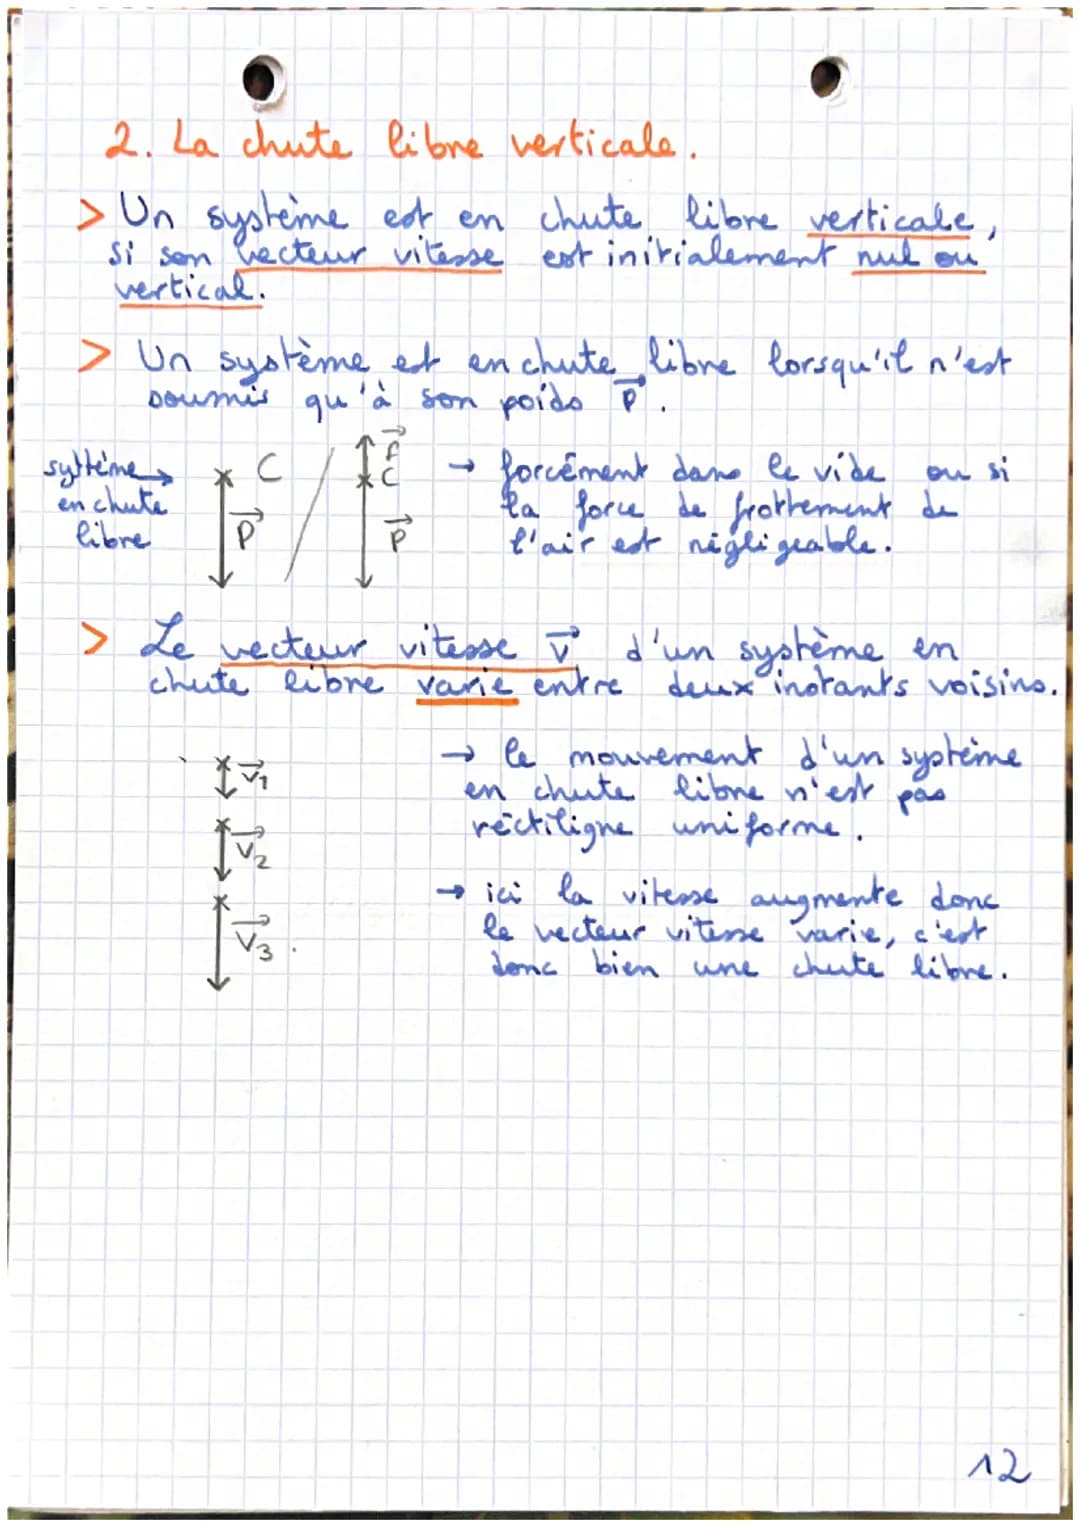 2. La chute libre verticale.
> Un système est en chute libre verticale,
si son vecteur vitesse est initialement nul ou
vertical.
> Un système est en chute libre lorsqu'il n'est
soumis qu'à son poids P⃗.
système → C / F⃗ C → forcément dans le vide ou si
en chute P⃗ P⃗ la force de frottement de
libre l'air est négligeable.
> Le vecteur vitesse v⃗ d'un système en
chute libre varie entre deux instants voisins.
V⃗1 → le mouvement d'un système
en chute libre n'est pas
rectiligne uniforme.
V⃗2
→ ici la vitesse augmente donc
V⃗3. le vecteur vitesse varie, c'est
donc bien une chute libre.
12